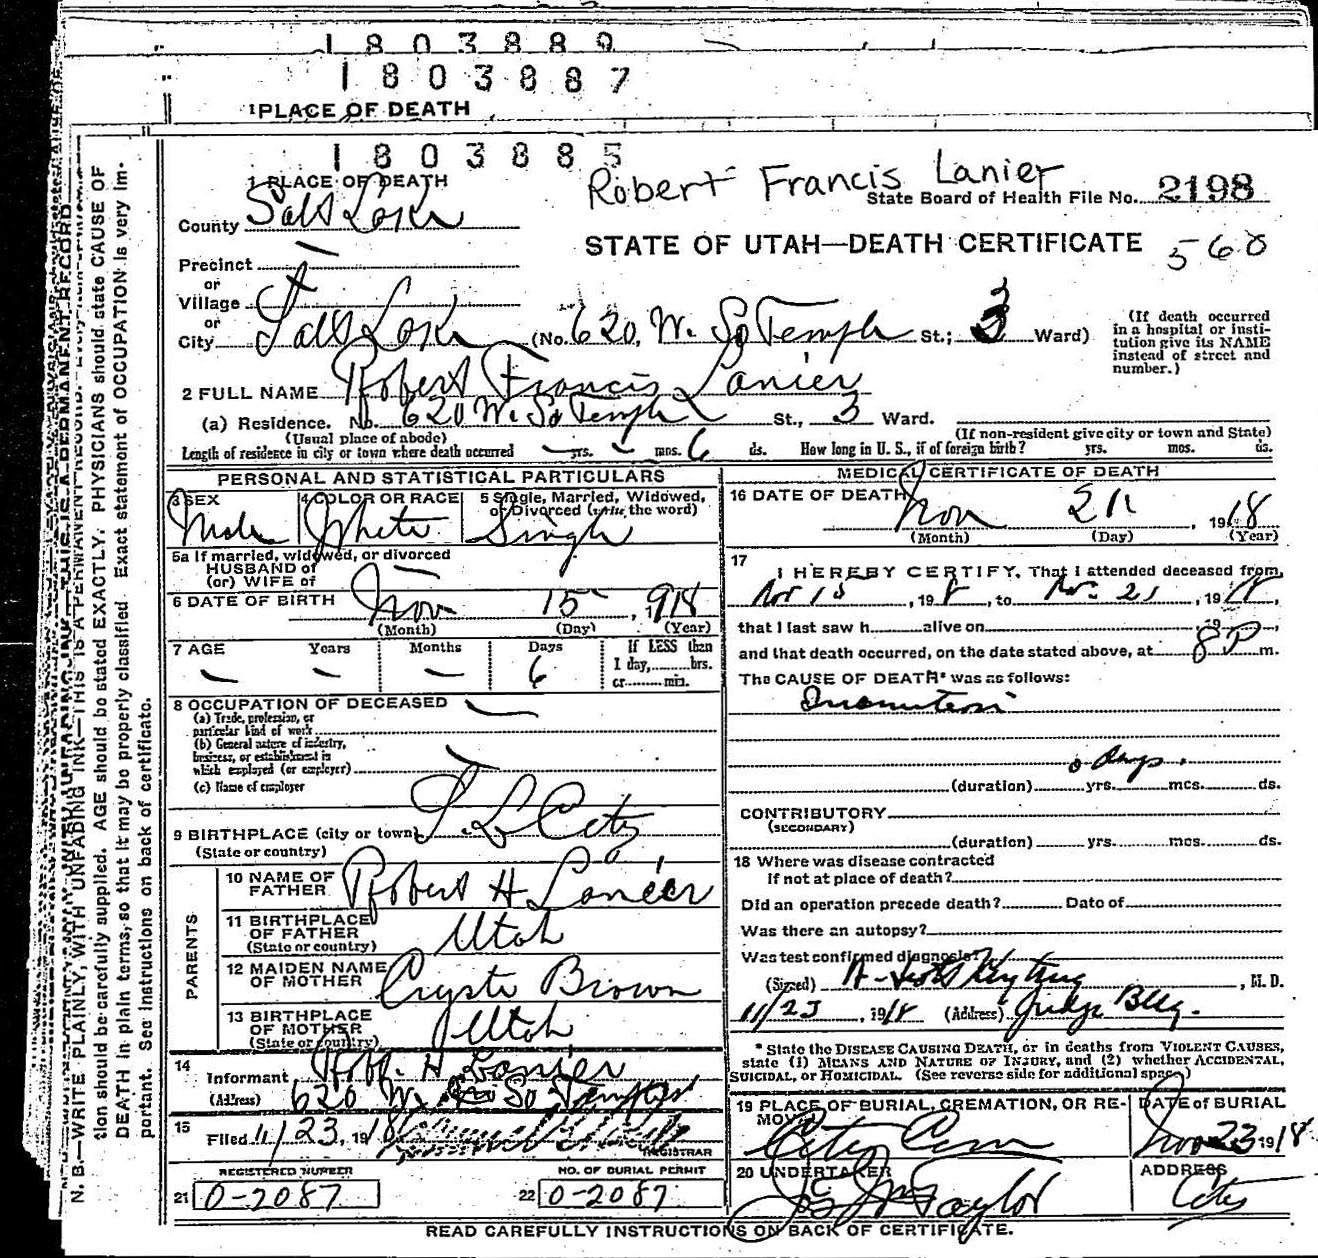 1803889
1803887
1 PLACE OF DEATH
1803885
1 PLACE OF DEATH
Robert Francis Lanier
State Board of Health File No. 2198
County Salt Lake
STATE OF UTAH—DEATH CERTIFICATE 560
Precinct
or
Village
or
City Salt Lake (No. 620, W. So Temple St.; 3 Ward)
(If death occurred in a hospital or institution give its NAME instead of street and number.)
2 FULL NAME Robert Francis Lanier
(a) Residence. No. 620 W. So Temple St., 3 Ward.
(Usual place of abode) (If non-resident give city or town and State)
Length of residence in city or town where death occurred yrs. mos. 6 ds. How long in U. S., if of foreign birth? yrs. mos. ds.
PERSONAL AND STATISTICAL PARTICULARS
3 SEX Male
4 COLOR OR RACE White
5 Single, Married, Widowed, or Divorced (write the word) Single
5a If married, widowed, or divorced
HUSBAND of
(or) WIFE of
6 DATE OF BIRTH Nov 15, 1918
(Month) (Day) (Year)
7 AGE Years Months Days If LESS than
— — 6 1 day, hrs.
or min.
8 OCCUPATION OF DECEASED
(a) Trade, profession, or
particular kind of work
(b) General nature of industry,
business, or establishment in
which employed (or employer)
(c) Name of employer
9 BIRTHPLACE (city or town) S L City
(State or country)
PARENTS
10 NAME OF FATHER Robert H Lanier
11 BIRTHPLACE OF FATHER Utah
(State or country)
12 MAIDEN NAME OF MOTHER Brown
13 BIRTHPLACE OF MOTHER Utah
(State or country)
14
Informant Robt. H Lanier
(Address) 620 W. So Temple
15
Filed 11/23, 1918
REGISTRAR
REGISTERED NUMBER NO. OF BURIAL PERMIT
21 0-2087 22 0-2087
MEDICAL CERTIFICATE OF DEATH
16 DATE OF DEATH Nov 21, 1918
(Month) (Day) (Year)
17
I HEREBY CERTIFY, That I attended deceased from
Nov 15, 1918, to Nov. 21, 1918,
that I last saw h alive on , 19 ,
and that death occurred, on the date stated above, at 8 P m.
The CAUSE OF DEATH* was as follows:
days.
(duration) yrs. mos. ds.
CONTRIBUTORY
(SECONDARY)
(duration) yrs. mos. ds.
18 Where was disease contracted
if not at place of death?
Did an operation precede death? Date of
Was there an autopsy?
Was test confirmed diagnosis?
(Signed) , M. D.
11/23, 1918 (Address) Judge Bldg.
* State the DISEASE CAUSING DEATH, or in deaths from VIOLENT CAUSES,
state (1) MEANS AND NATURE OF INJURY, and (2) whether ACCIDENTAL,
SUICIDAL, or HOMICIDAL. (See reverse side for additional space)
19 PLACE OF BURIAL, CREMATION, OR REMOVAL City Cem
DATE of BURIAL Nov 23 1918
20 UNDERTAKER Taylor
ADDRESS City
READ CAREFULLY INSTRUCTIONS ON BACK OF CERTIFICATE.
N. B.—WRITE PLAINLY, WITH UNFADING INK—THIS IS A PERMANENT RECORD.
tion should be carefully supplied. AGE should be stated EXACTLY. PHYSICIANS should state CAUSE OF
DEATH in plain terms, so that it may be properly classified. Exact statement of OCCUPATION is very im-
portant. See instructions on back of certificate.